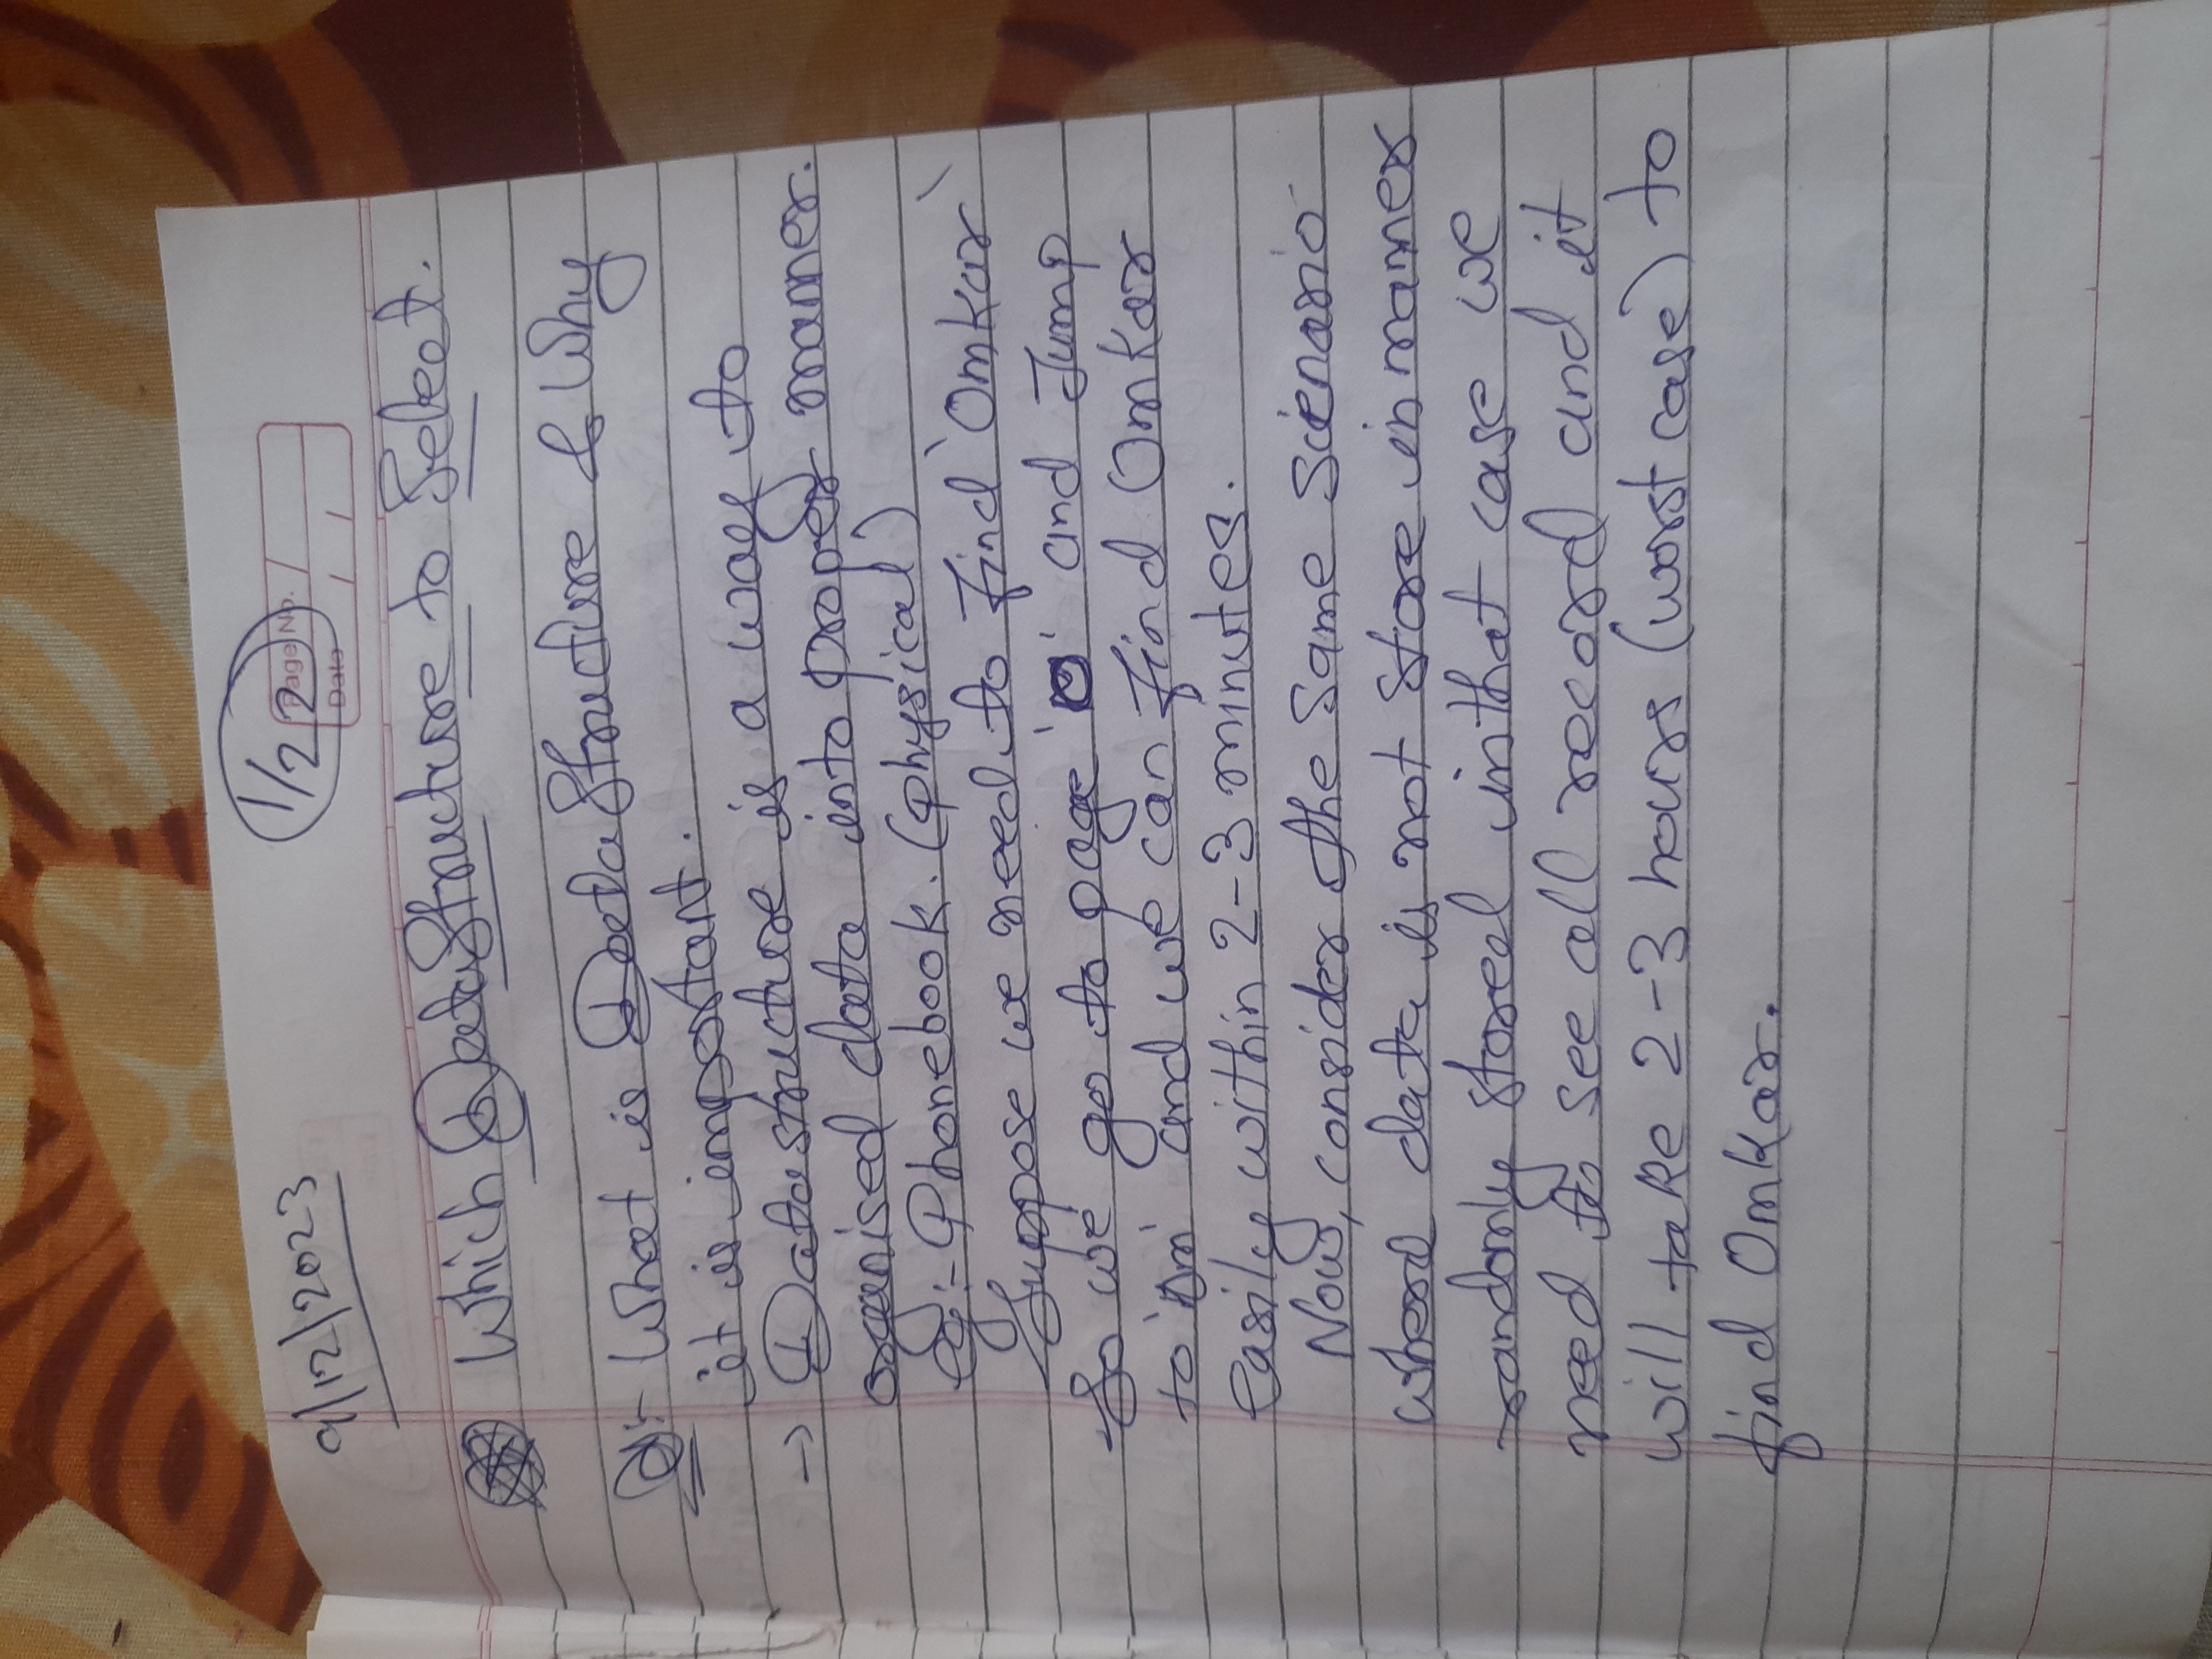 9/12/2023
1/22
Page No.
Date / /
Which DataStructure to Select.
Q:- What is DataStructure & Why
it is important.
→ Datastructure is a way to
organised data into proper manner.
eg:- Phonebook. (physical)
Suppose we need to find `Omkar`
So we go to page 'O' and Jump
to 'Om' and we can find Omkar
easily within 2-3 minutes.
Now, consider the Same Scienario
where data is not store in manner
randomly stored in that case we
need to see all record and it
will take 2-3 hours (worst case) to
find Omkar.